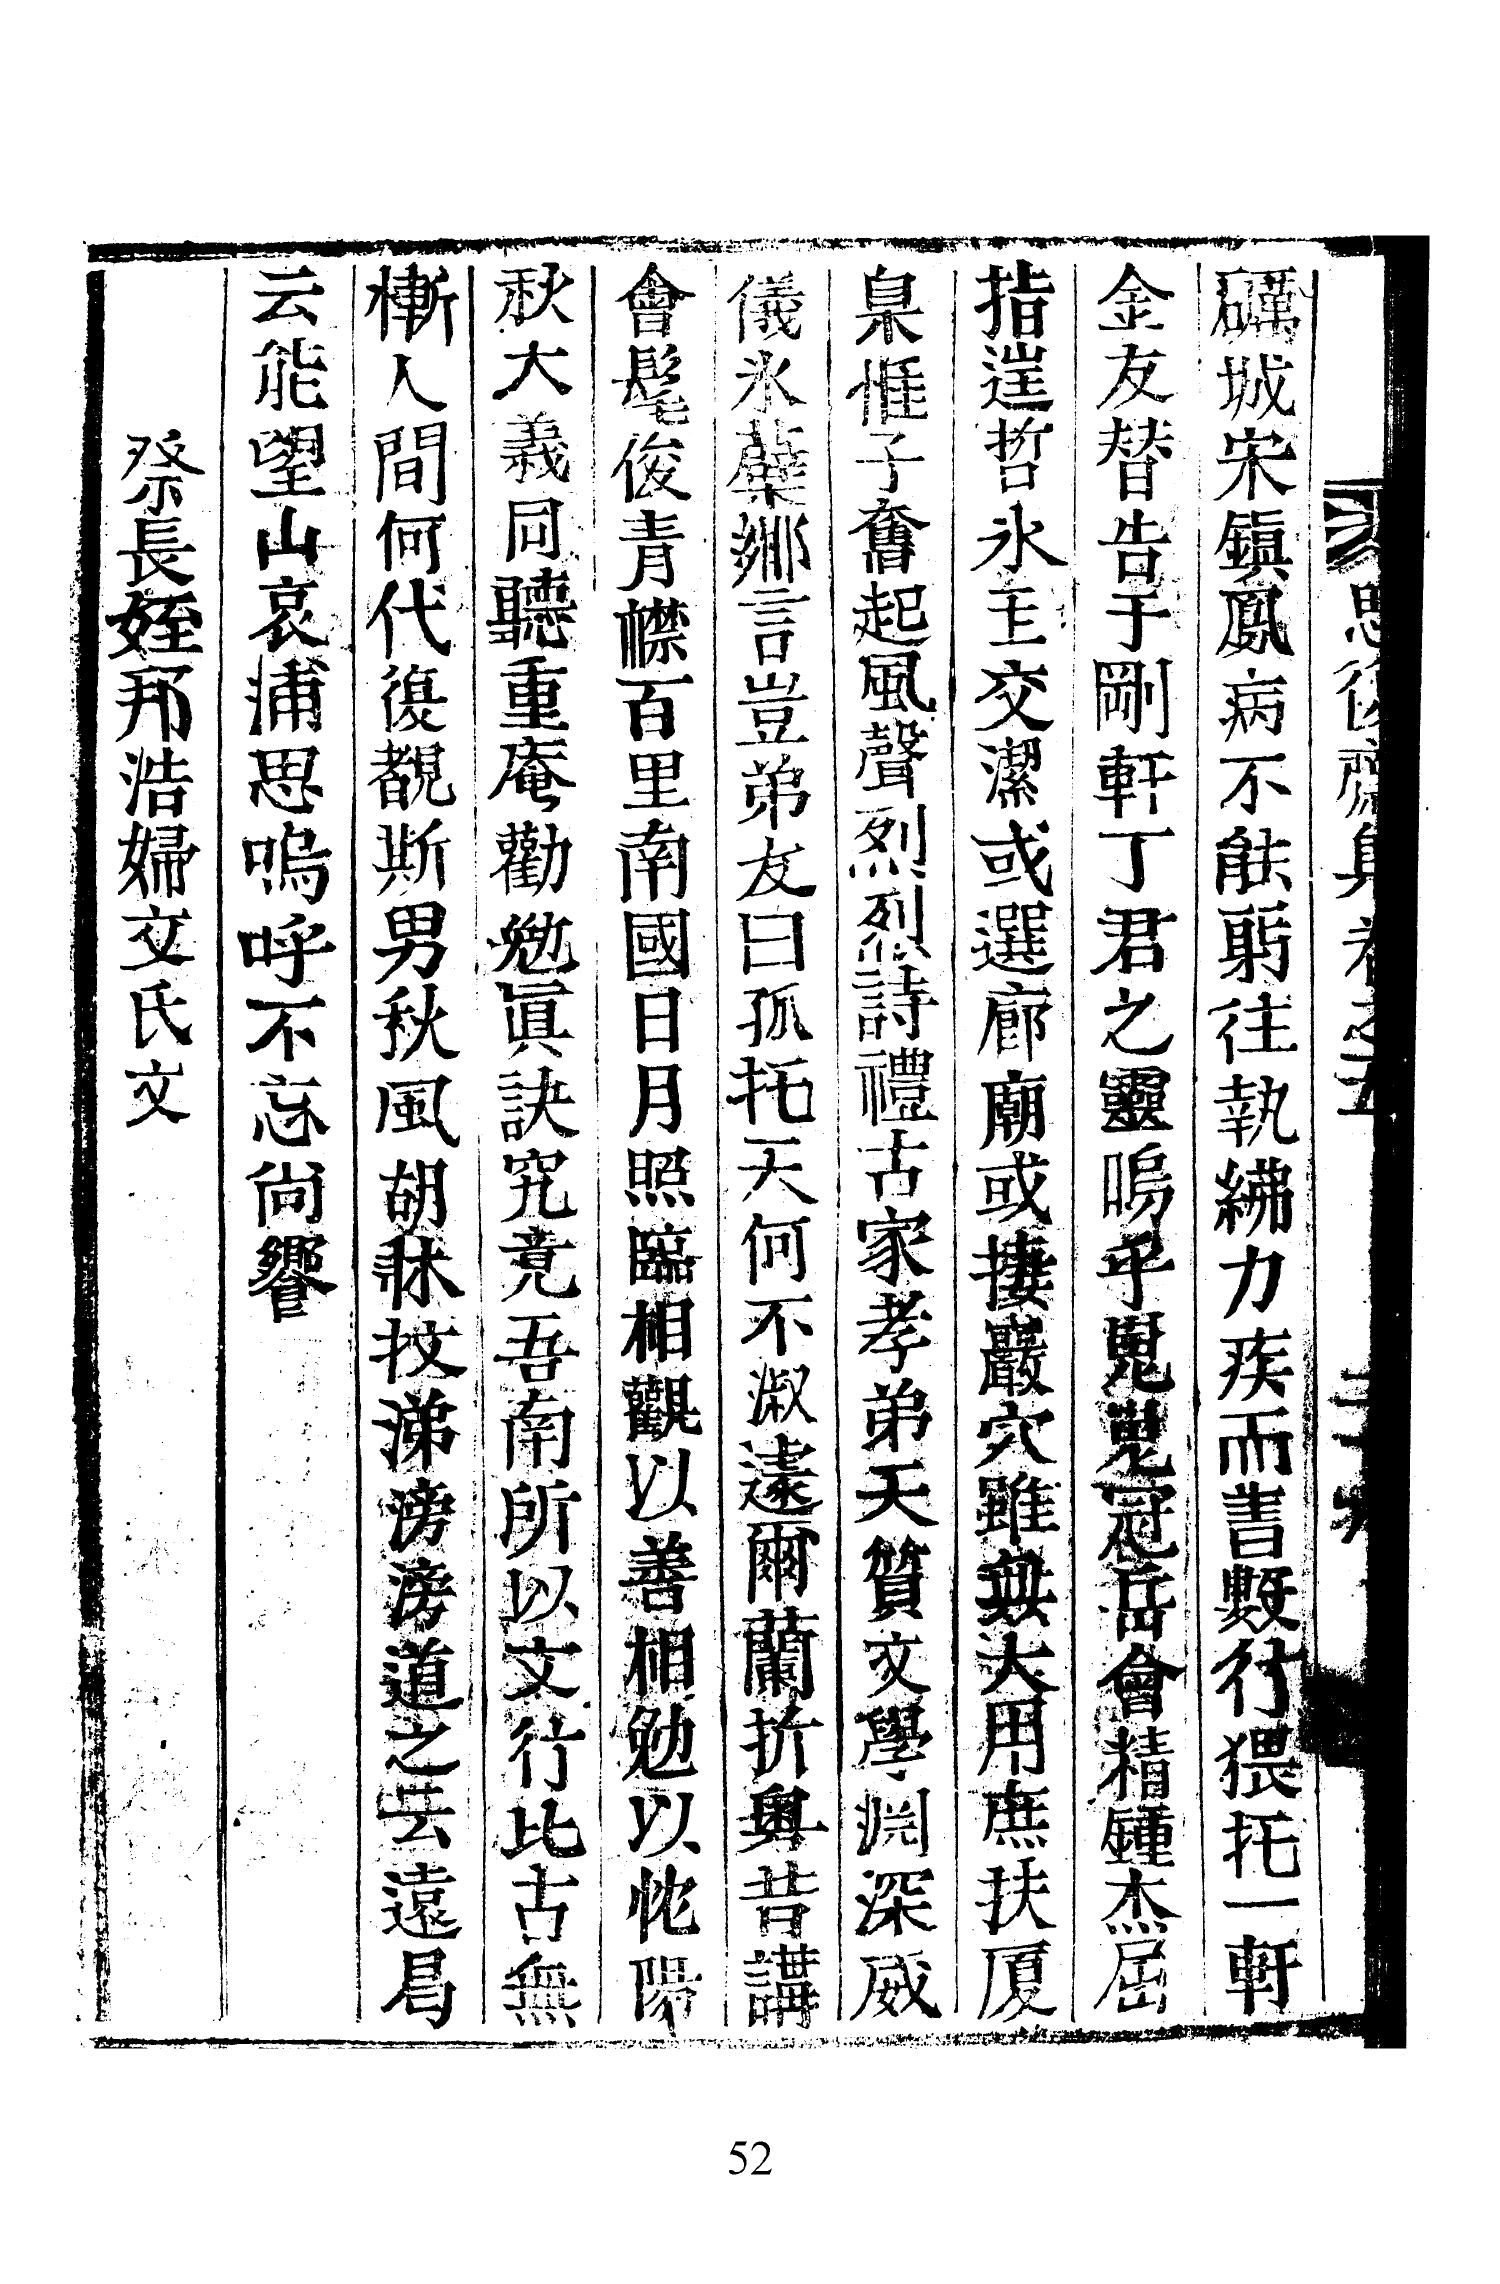 思復齋集卷之五
二十九
礪城宋鎭鳳病不能躬往執紼力疾而書數行猥托一軒
金友替告于剛軒丁君之靈嗚乎嵬嵬冠岳會精鍾杰屈
指逹哲氷玉交潔或選廊廟或捿巖穴雖無大用庶扶厦
臬惟子奮起風聲烈烈詩禮古家孝弟天質文學淵深威
儀氷蘖鄕言豈弟友曰孤托天何不淑遽爾蘭折粤昔講
會髦俊青襟百里南國日月照臨相觀以善相勉以忱陽
秋大義同聽重庵勸勉眞訣究竟吾南所以文行比古無
慚人間何代復覩斯男秋風胡秝抆涕滂滂道之云遠曷
云能望山哀浦思嗚呼不忘尙饗
祭長姪邦浩婦文氏文
52